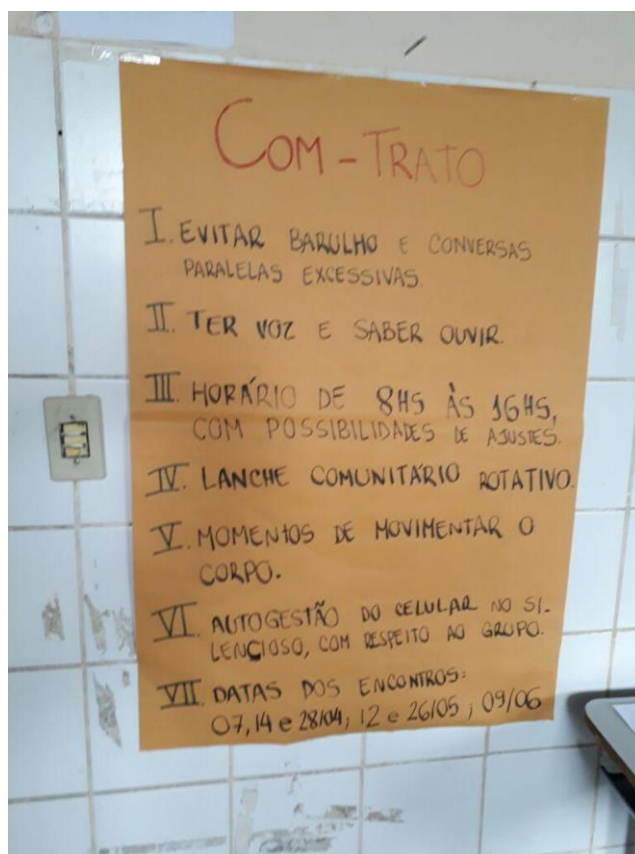 COM-TRATO
I. EVITAR BARULHO E CONVERSAS
PARALELAS EXCESSIVAS.
II. TER VOZ E SABER OUVIR.
III. HORÁRIO DE 8HS ÀS 16HS,
COM POSSIBILIDADES DE AJUSTES.
IV. LANCHE COMUNITÁRIO ROTATIVO.
V. MOMENTOS DE MOVIMENTAR O
CORPO.
VI. AUTOGESTÃO DO CELULAR NO SI-
LENCIOSO, COM RESPEITO AO GRUPO.
VII. DATAS DOS ENCONTROS:
07, 14 e 28/04; 12 e 26/05; 09/06